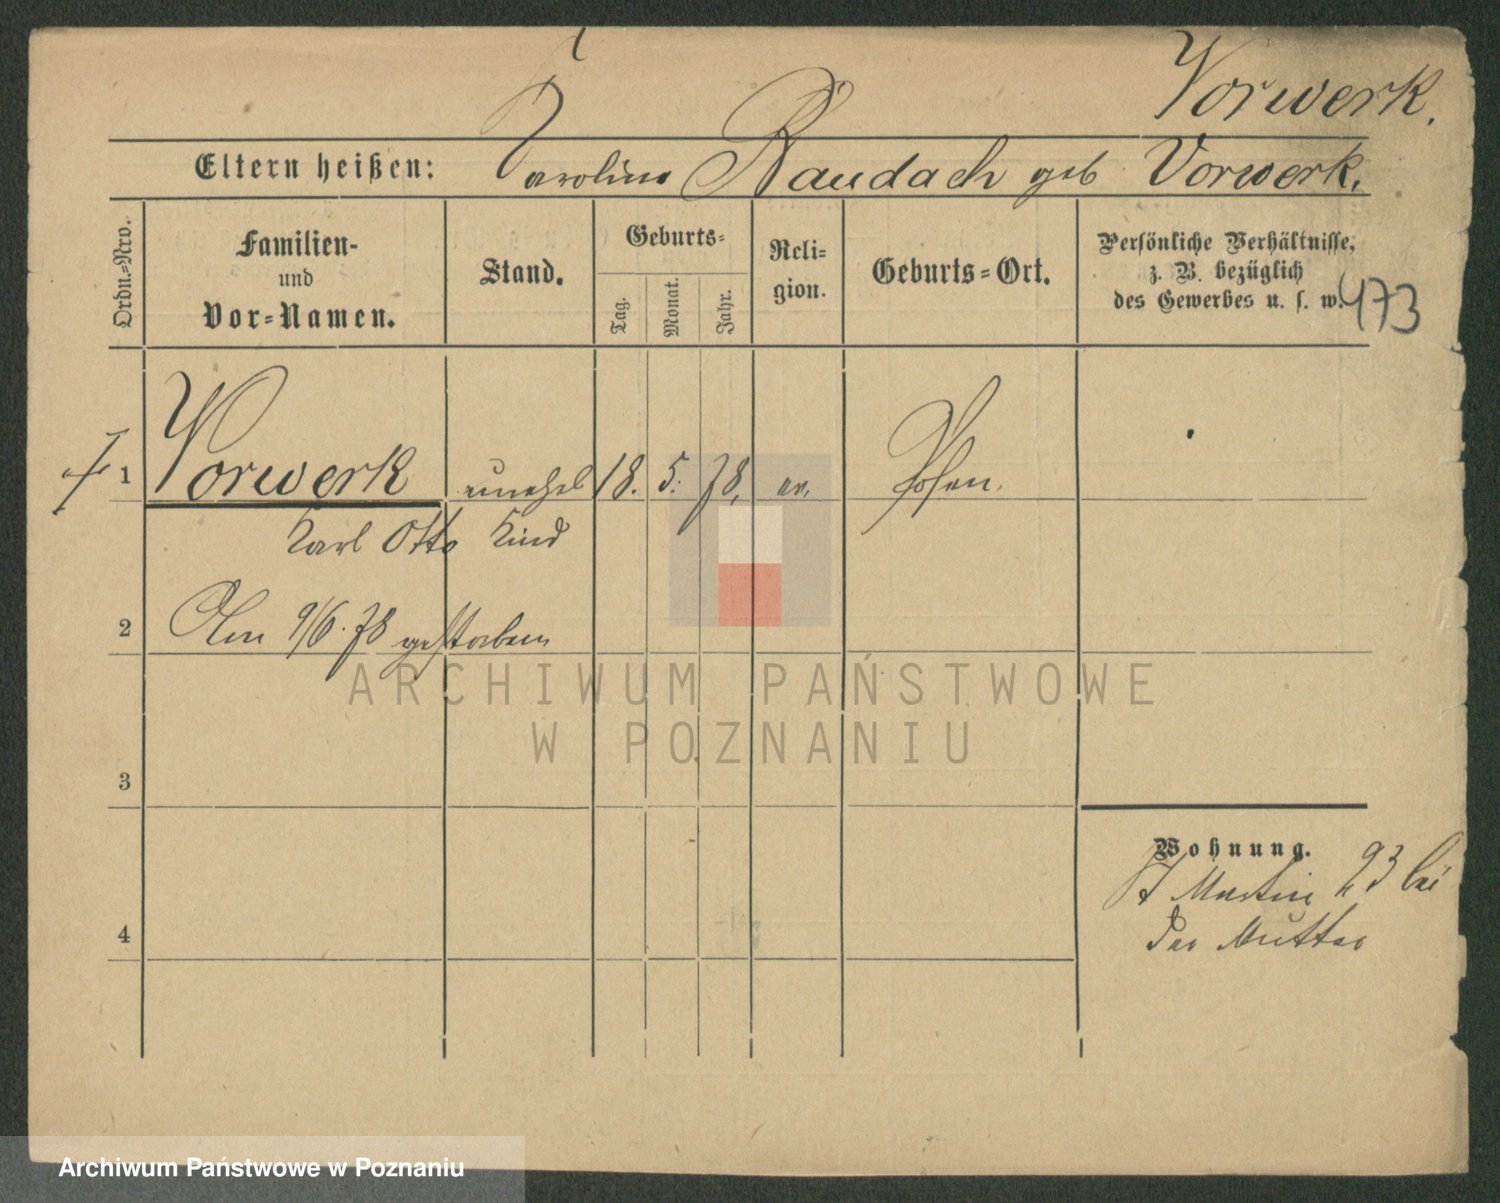 Vorwerk.
Eltern heißen: Karoline Raudach geb Vorwerk.
Ordn.-Nro.
Familien-
und
Vor-Namen.
Stand.
Geburts-
Tag.
Monat.
Jahr.
Reli-
gion.
Geburts-Ort.
Persönliche Verhältnisse,
z. B. bezüglich
des Gewerbes u. s. w.
473
† 1 Vorwerk unehel 18. 5. 78. ev. Posen.
Karl Otto Kind
2 Am 9/6. 78 gestorben
3
4
Wohnung.
St Martin 23 bei
der Mutter
ARCHIWUM PAŃSTWOWE
W POZNANIU
Archiwum Państwowe w Poznaniu